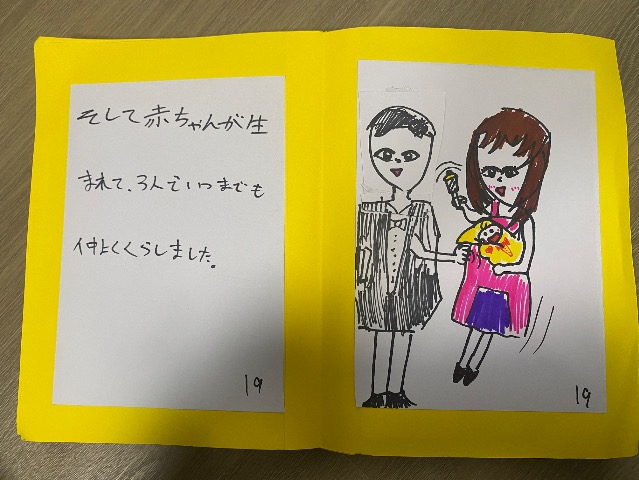 そして赤ちゃんが生
まれて、3人でいつまでも
仲よくくらしました。
19
19